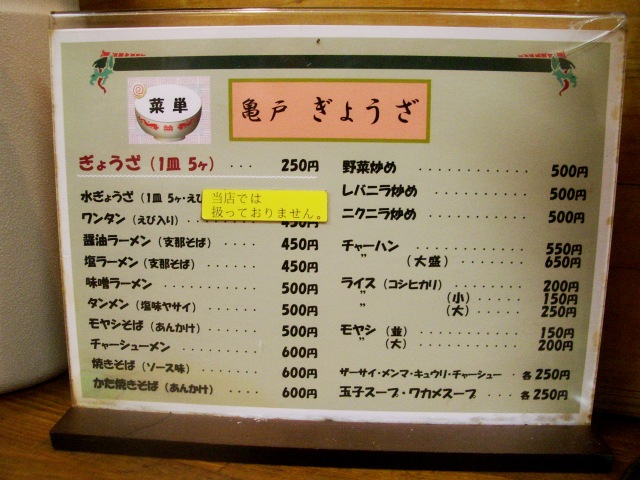 菜単
亀戸 ぎょうざ
ぎょうざ (1皿 5ヶ) ··· 250円
水ぎょうざ (1皿 5ヶ・えび
当店では
扱っておりません。
ワンタン (えび入り) 450円
醤油ラーメン (支那そば) ···· 450円
塩ラーメン (支那そば) ····· 450円
味噌ラーメン ············ 500円
タンメン (塩味ヤサイ) ····· 500円
モヤシそば (あんかけ) ···· 500円
チャーシューメン ········ 600円
焼きそば (ソース味) ····· 600円
かた焼きそば (あんかけ) ···· 600円
野菜炒め ············ 500円
レバニラ炒め ·········· 500円
ニクニラ炒め ·········· 500円
チャーハン ············ 550円
〃 (大盛) ········ 650円
ライス (コシヒカリ) ······· 200円
〃 (小) ····· 150円
〃 (大) ····· 250円
モヤシ (並) ··········· 150円
〃 (大) ··········· 200円
ザーサイ・メンマ・キュウリ・チャーシュー ·· 各250円
玉子スープ・ワカメスープ ···· 各250円